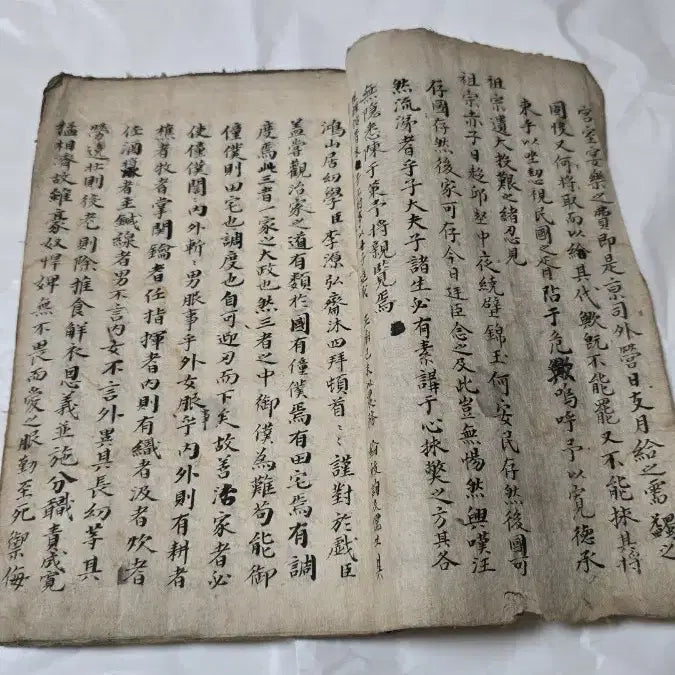 宮室宴樂之費卽是京司外營日支月給之需蠲之
間後又何將取而以給其代歟旣不能罷又不能捄其將
束手以坐忍視民國之胥阽于危歟嗚呼予以寬德承
祖宗遺大投艱之緖忍見
祖宗赤子日趍邱壑中夜繞壁錦玉何安民存然後國可
存國存然後家可存今日廷臣念之及此豈無惕然興嘆汪
然流涕者乎子大夫子諸生必有素講于心捄獘之方其各
無隱悉陳于策予將親覽焉
鴻山居幼學臣李源弘齋沐四拜頓首〻謹對於戱臣
盖嘗觀治家之道有類於國有僮僕焉有田宅焉有調
度焉此三者一家之大政也然三者之中御僕爲難苟能御
僮僕則田宅也調度也自可迎刃而下矣故善治家者必
使僮僕閑〻內外斬〻男服事乎外女服事乎內外則有耕者
樵者牧者掌閑鑰者任指揮者內則有織者汲者炊者
任澗者主鍼線者男不言內女不言外異其長幼等其
勞逸壯則後老則除推食解衣恩義並施分職責成寬
猛相濟故雖豪奴悍婢無不畏而愛之服勤至死禦侮